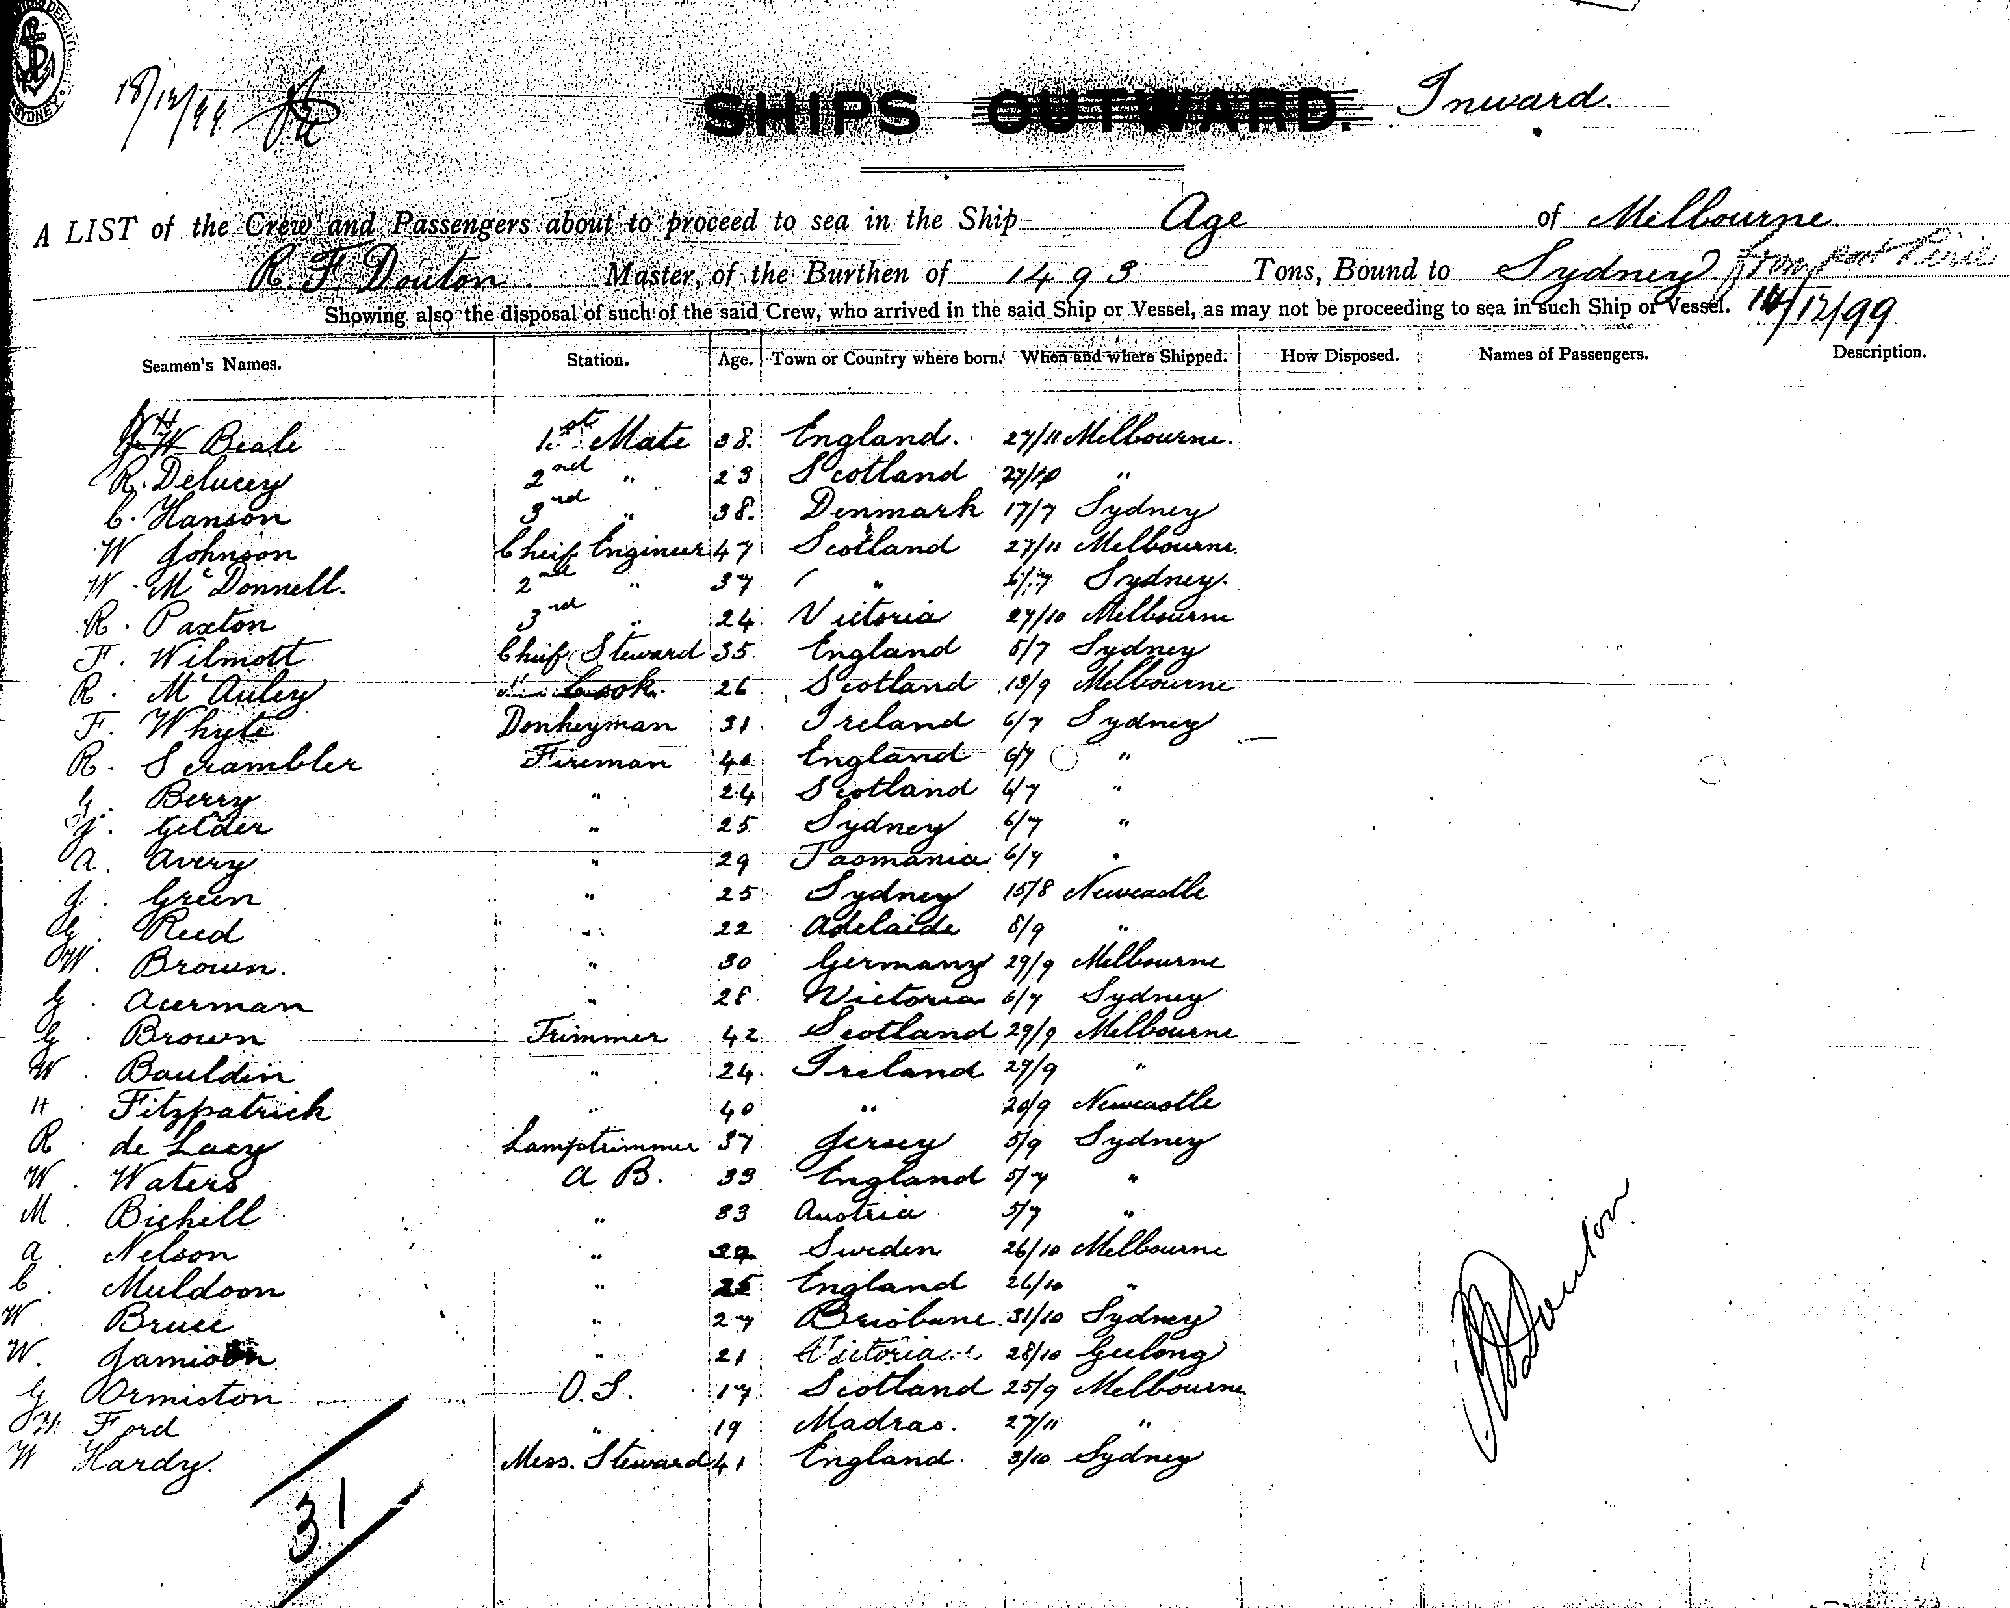 SYDNEY
18/12/99
SHIPS OUTWARD. Inward.
A LIST of the Crew and Passengers about to proceed to sea in the Ship Age of Melbourne
R. F Douton Master, of the Burthen of 1493 Tons, Bound to Sydney from port Pirie
Showing also the disposal of such of the said Crew, who arrived in the said Ship or Vessel, as may not be proceeding to sea in such Ship or Vessel. 14/12/99
Seamen's Names. Station. Age. Town or Country where born. When and where Shipped. How Disposed. Names of Passengers. Description.
W Beale 1st Mate 38. England. 27/11 Melbourne.
R. Delucey 2nd " 23 Scotland "
C. Hanson 3rd " 38. Denmark 17/7 Sydney
W Johnson Cheif Engineer 47 Scotland 27/11 Melbourne
W. McDonnell. 2nd " 37 " Sydney.
R. Paxton 3rd " 24 Victoria 27/10 Melbourne
F. Wilmott Cheif Steward 35 England 5/7 Sydney
R. McAuley Cook. 26 Scotland 13/9 Melbourne
F. Whyte Donkeyman 31 Ireland 6/7 Sydney
R. Scrambler Fireman 40 England 6/7 "
G. Berry " 24 Scotland 6/7 "
J. Gelder " 25 Sydney 6/7 "
A. Avery " 29 Tasmania 6/7 "
J. Green " 25 Sydney 15/8 Newcastle
G. Reed " 22 Adelaide 8/9 "
W. Brown. " 30 Germany 29/9 Melbourne
G. Acerman " 28 Victoria 6/7 Sydney
G. Brown Trimmer 42 Scotland 29/9 Melbourne
W. Bauldin " 24. Ireland 29/9 "
H. Fitzpatrick " 40 " 20/9 Newcastle
R. de Lacy Lamptrimmer 37 Jersey 5/9 Sydney
W. Waters A B. 33 England 5/7 "
M. Bichell " 33 Austria 5/7 "
A. Nelson " Sweden 26/10 Melbourne
C. Muldoon " 25 England 26/10 "
W. Bruce " 27 Brisbane 31/10 Sydney
W. Jamison " 21 Victoria 28/10 Geelong
G Ormiston O.S. 17 Scotland 25/9 Melbourne
H. Ford " 19 Madras. 27/11 "
W Hardy. Mess. Steward 41 England. 3/10 Sydney
31
R F Douton